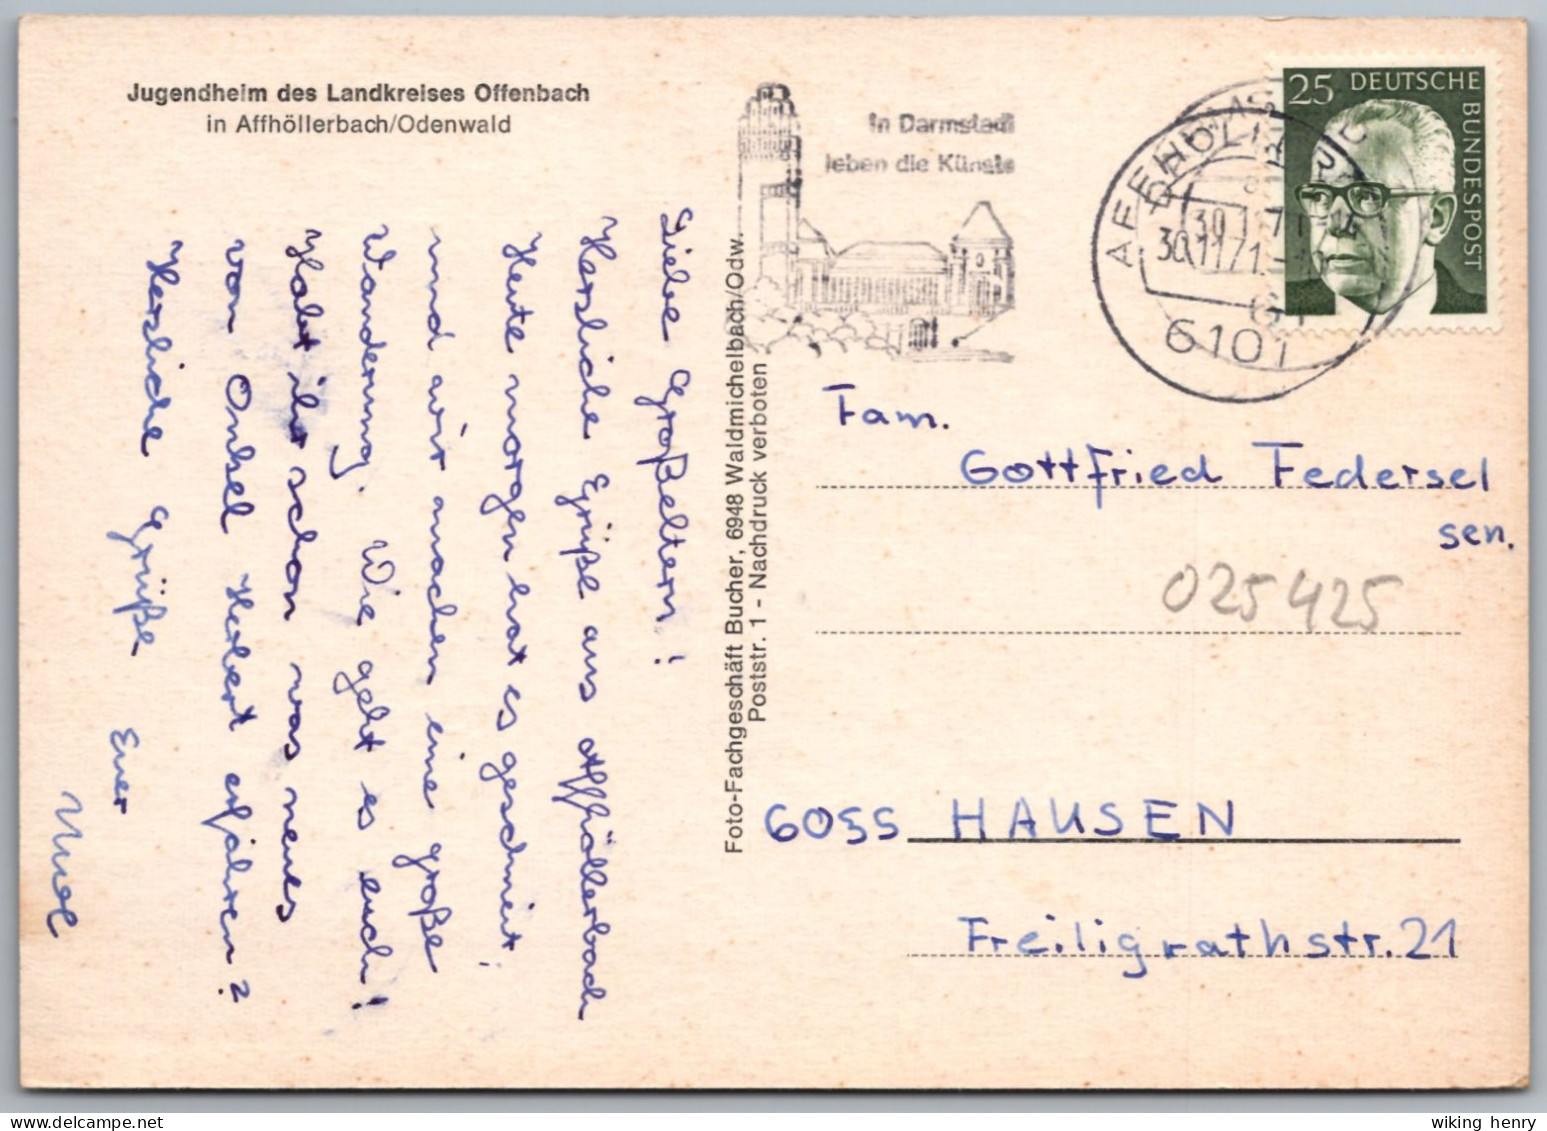 Jugendheim des Landkreises Offenbach
in Affhöllerbach/Odenwald
Liebe Großeltern!
Herzliche Grüße aus Affhöllerbach
Heute morgen hat es geschneit!
und wir machen eine große
Wanderung. Wie geht es euch!
Habt ihr schon was neues
von Onkel Herbert erfahren?
Herzliche Grüße
Euer
Foto-Fachgeschäft Bucher, 6948 Waldmichelbach/Odw.
Poststr. 1 - Nachdruck verboten
In Darmstadt
leben die Künste
30.11.71
6101
25 DEUTSCHE
BUNDESPOST
Fam.
Gottfried Federsel
sen.
025425
6055 HAUSEN
Freiligrathstr. 21
wiking henry